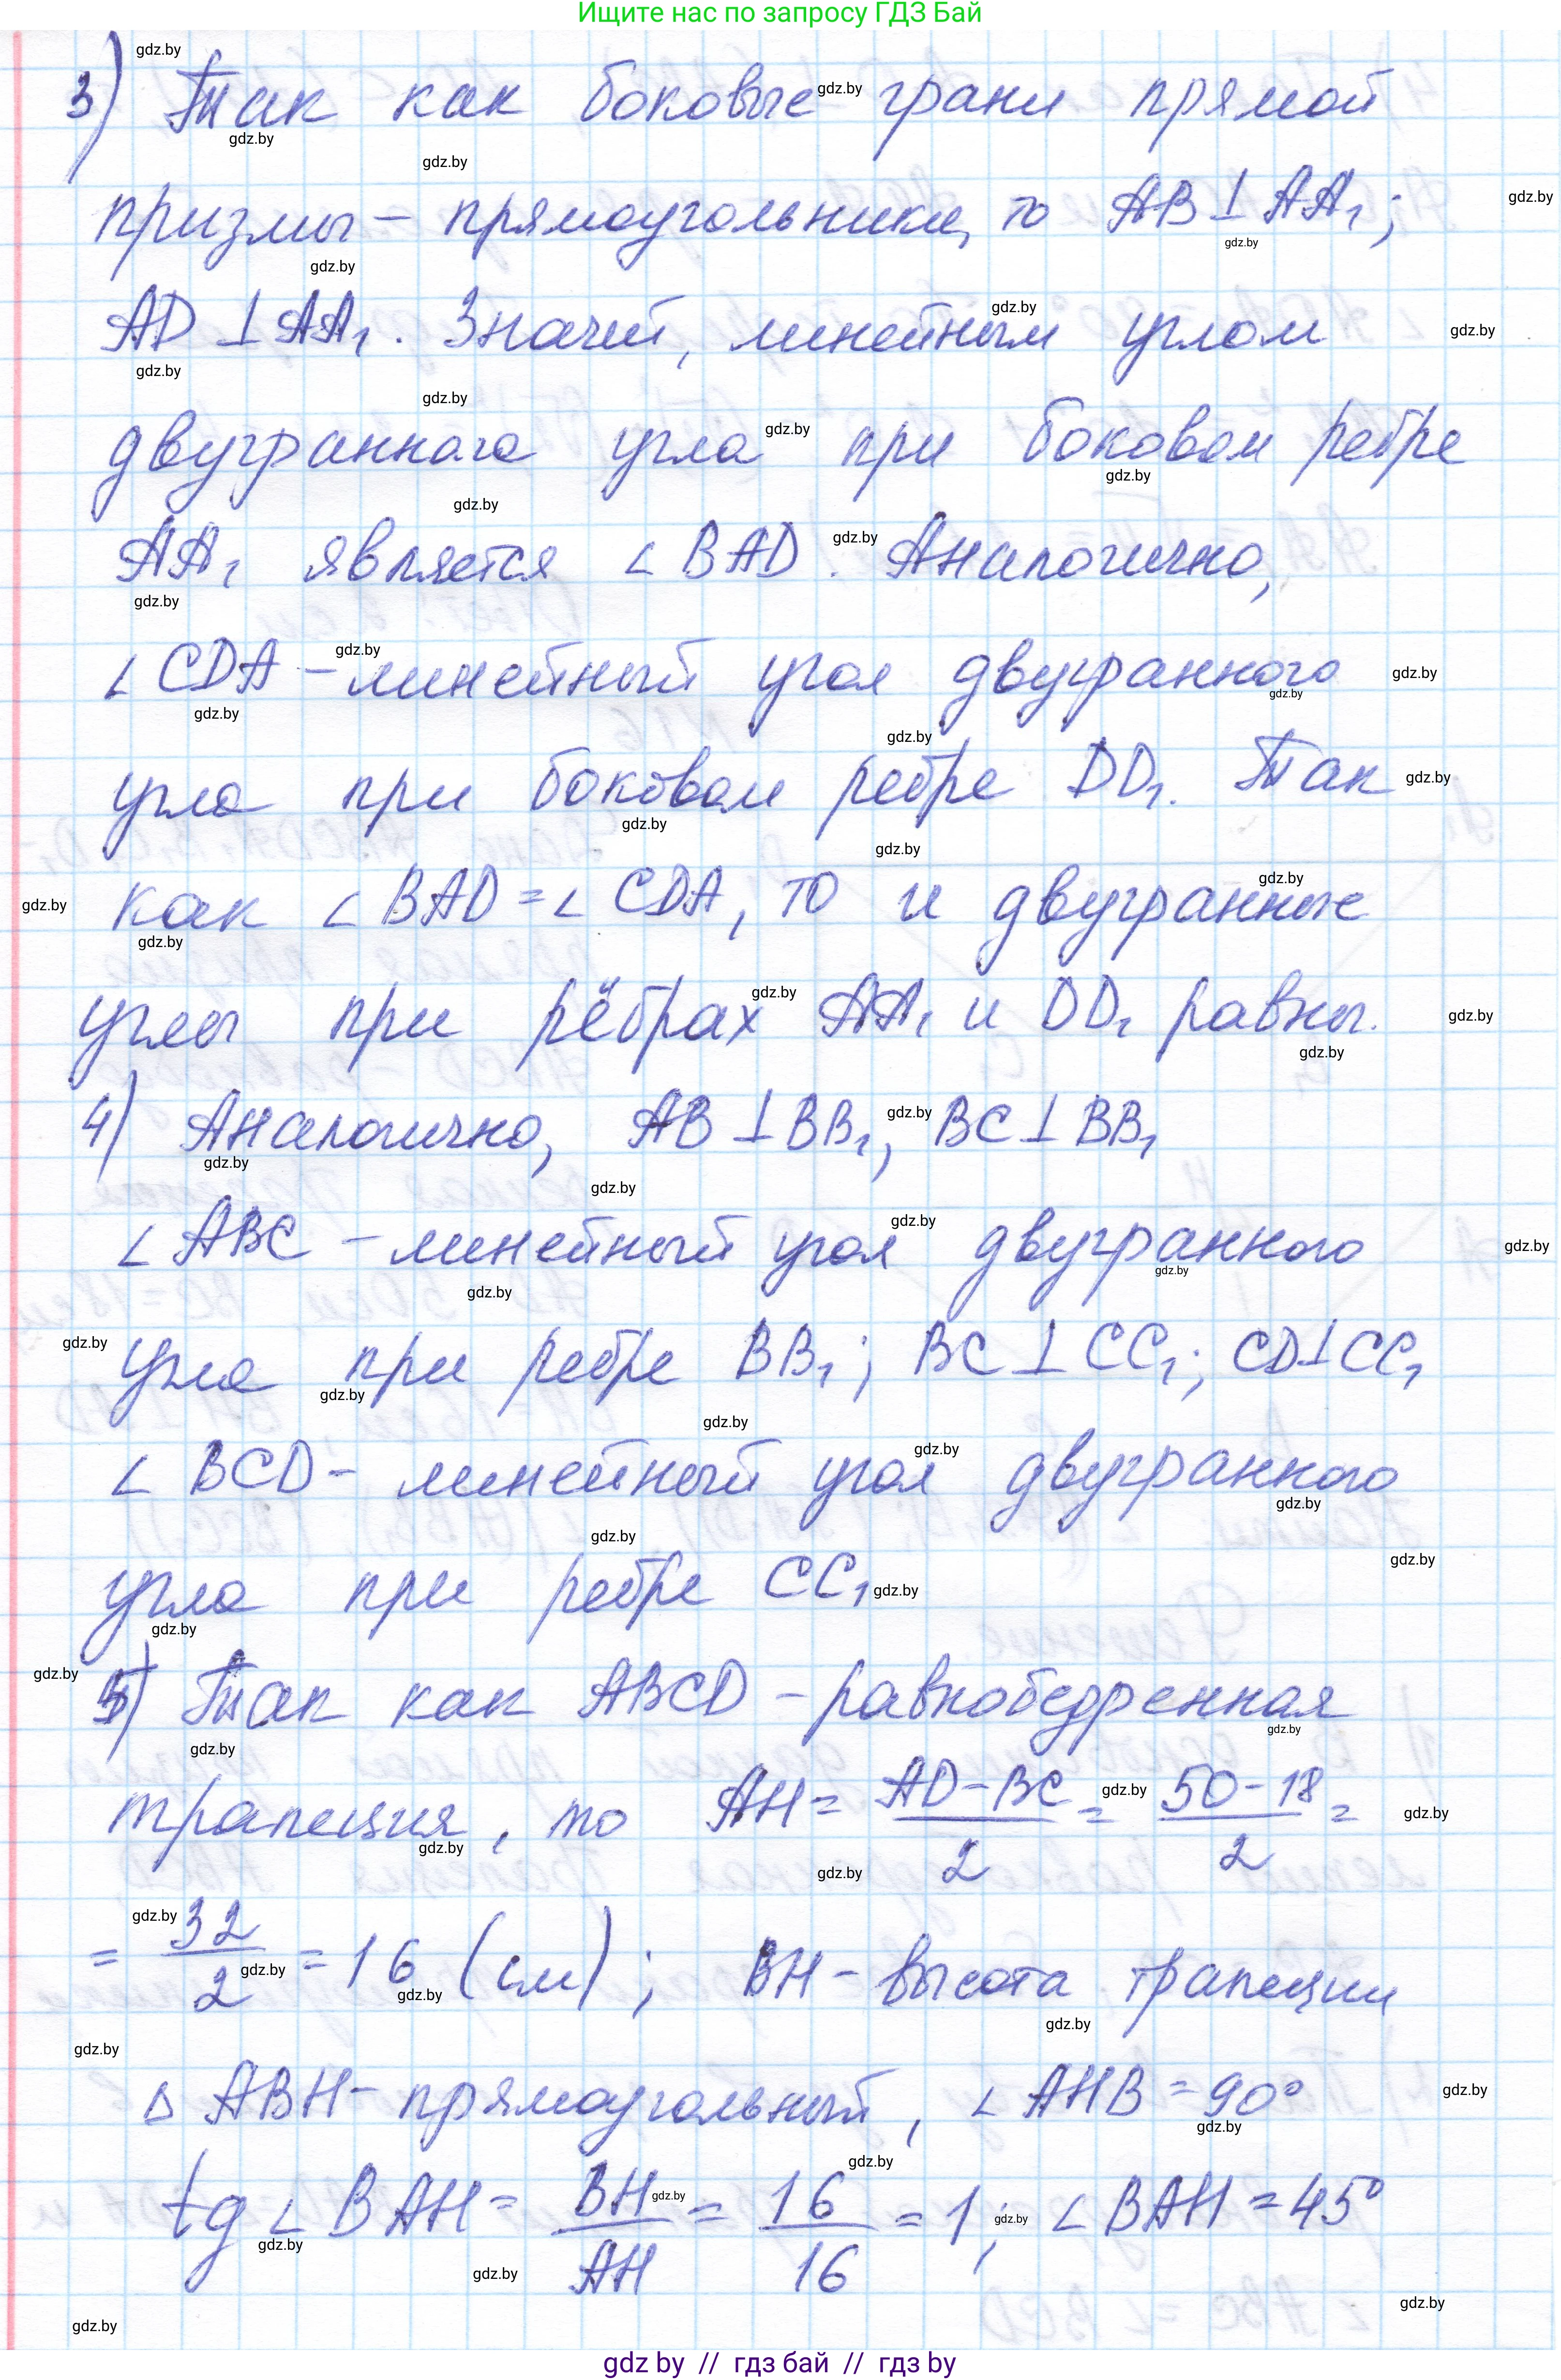 Ищите нас по запросу ГДЗ Бай
3) Так как боковые грани прямой
призмы – прямоугольники, то AB ⊥ AA₁;
AD ⊥ AA₁. Значит, линейным углом
двугранного угла при боковом ребре
AA₁ является ∠BAD. Аналогично,
∠CDA – линейный угол двугранного
угла при боковом ребре DD₁. Так
как ∠BAD = ∠CDA, то и двугранные
углы при рёбрах AA₁ и DD₁ равны.
4) Аналогично, AB ⊥ BB₁, BC ⊥ BB₁
∠ABC – линейный угол двугранного
угла при ребре BB₁; BC ⊥ CC₁; CD ⊥ CC₁
∠BCD – линейный угол двугранного
угла при ребре CC₁
5) Так как ABCD – равнобедренная
трапеция, то AH = (AD – BC)/2 = (50 – 18)/2 =
= 32/2 = 16 (см); BH – высота трапеции
△ ABH – прямоугольный, ∠AHB = 90°
tg ∠BAH = BH/AH = 16/16 = 1; ∠BAH = 45°
gdz by // гдз бай // гдз by